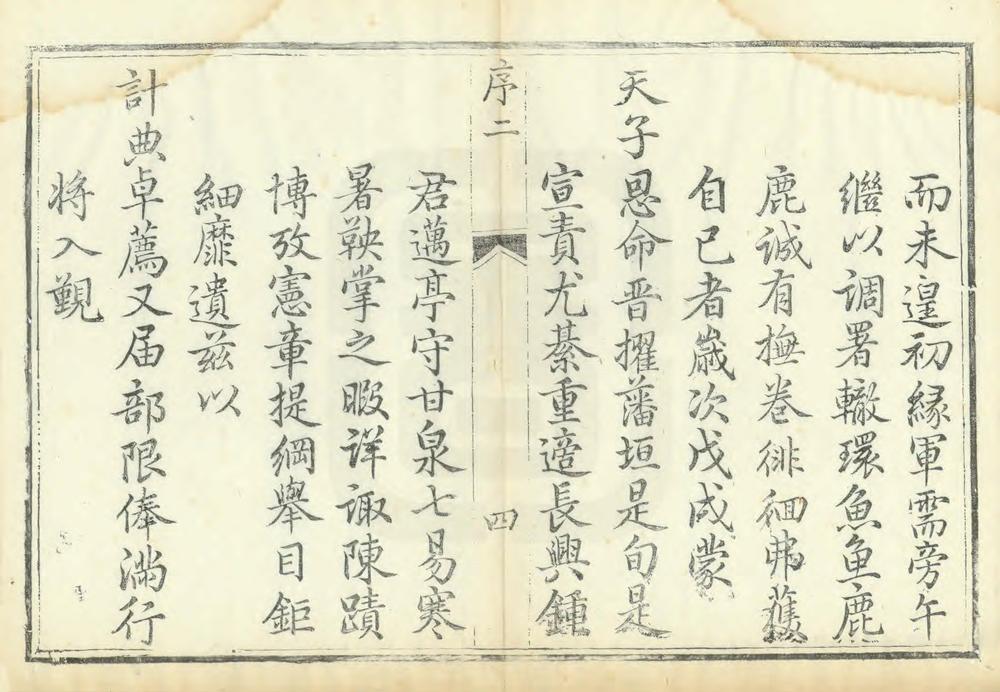 而未遑初緣軍需旁午
繼以調署轍環魚魚鹿
鹿誠有撫卷徘徊弗獲
自已者歲次戊戌蒙
天子恩命晋擢藩垣是旬是
宣責尤綦重適長興鍾
序二
四
君邁亭守甘泉七易寒
暑鞅掌之暇詳諏陳蹟
博攷憲章提綱舉目鉅
細靡遺兹以
計典卓薦又届部限俸滿行
将入覲